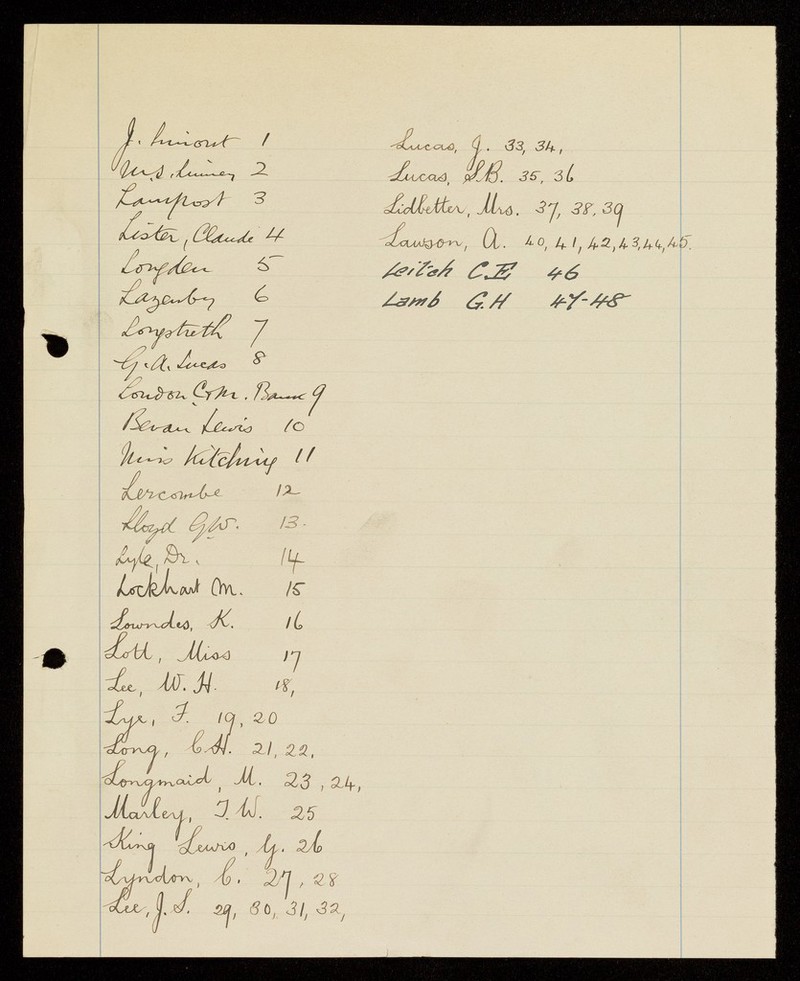 J. Limont 1
M.S. Linney 2
Lampost 3
Lister, Claude 4
Longden 5
Lazenby 6
Longstreth 7
G. A. Lucas 8
London C & M. Bank 9
Bevan Lewis 10
Miss Kitching 11
Lercombe 12
Lloyd G.W. 13.
Lyle, Dr. 14
Lockhart M. 15
Lowndes, K. 16
Lott, Miss 17
Lee, W. H. 18,
Lye, F. 19, 20
Long, C.H. 21, 22,
Longmaid, M. 23, 24,
Marley, T. W. 25
King Lewis, G. 26
Lyndon, C. 27, 28
Lee, J. S. 29, 30, 31, 32,
Lucas, J. 33, 34,
Lucas, S.B. 35, 36
Lidbetter, Mrs. 37, 38, 39
Lawson, A. 40, 41, 42, 43, 44, 45.
Leitch C.E. 46
Lamb G.H 47-48